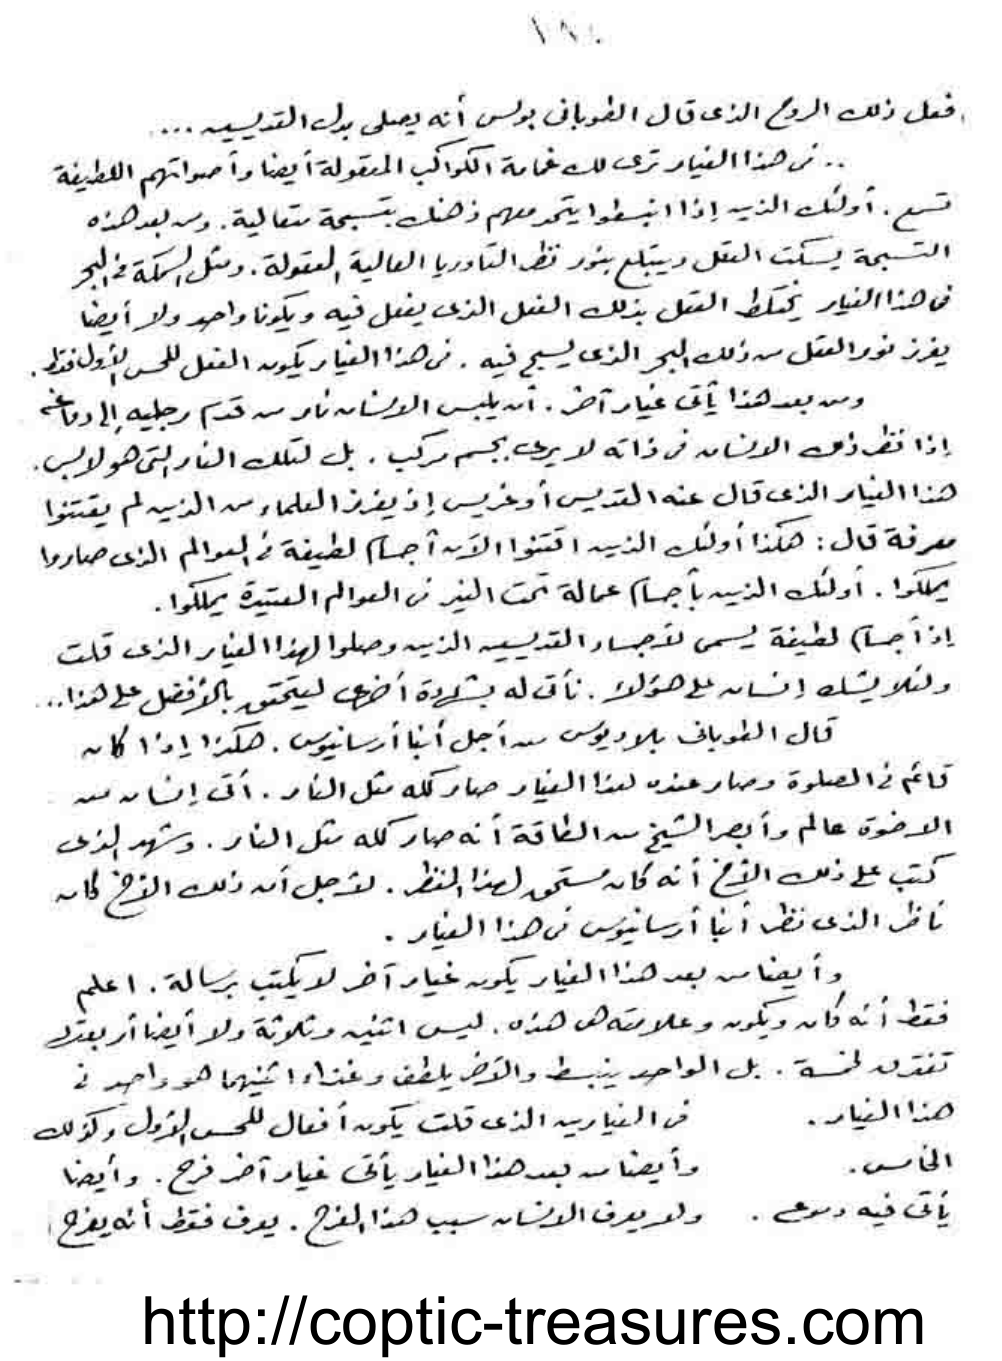 ١٨٠
فعل ذلك الروح الذى قال الطوبانى بولس أنه يصلى بدل القديسين ....
.. فى هذا الغيار ترى لك غمامة الكواكب المعقولة أيضا وأصواتهم اللطيفة
تسمع . أولئك الذين إذا انبسطوا يتحد معهم ذهنك بتسبحة متعالية . ومن بعد هذه
التسبحة يسكت العقل ويبتلع بنور نظر التاوريا العالية المعقولة . ومثل السمكة فى البحر
فى هذا الغيار يختلط العقل بذلك الفعل الذى يفعل فيه ويكونا واحد ولا أيضا
يفرز نور العقل من ذلك البحر الذى يسبح فيه . فى هذا الغيار يكون الفعل للحس الأول فقط .
ومن بعد هذا يأتى غيار آخر . أن يلبس الانسان نار من قدم رجليه إلى دماغه
إذا نظر ذلك الانسان فى ذاته لا يرى بجسم مركب . بل لتلك النار التى هو لابس .
هذا الغيار الذى قال عنه القديس أوغريس إذ يفرز العلماء من الذين لم يقتنوا
معرفة قال : هكذا أولئك الذين اقتنوا الآن أجسام لطيفة فى العوالم الذى صاروا
يملكوا . أولئك الذين بأجسام عمالة تحت النير فى العوالم العتيدة يملكوا .
إذاً أجسام لطيفة يسمى لأجساد القديسين الذين وصلوا لهذا الغيار الذى قلت
ولئلا يشك إنسان على هؤلاء . نأتى له بشهادة أخرى ليتحقق بالأفضل على هذا ...
قال الطوبانى بلاديوس من أجل أنبا أرسانيوس . هكذا إذا كان
قائم فى الصلوة وصار عنده لهذا الغيار صار كله مثل النار . أتى إنسان من
الاخوة عالم وأبصر الشيخ من الطاقة أنه صار كله مثل النار . وشهد الذى
كتب على ذلك الأخ أنه كان مستحق لهذا المنظر . لأجل أن ذلك الأخ كان
ناظر الذى نظر أنبا أرسانيوس فى هذا الغيار .
وأيضا من بعد هذا الغيار يكون غيار آخر لا يكتب برسالة . اعلم
فقط أنه كان ويكون وعلامته هى هذه . ليس اثنين وثلاثة ولا أيضا أربعة
تفترق لخمسة . بل الواحد ينبسط والآخر يلطف وغذاء اثنيهما هو واحد فى
هذا الغيار . فى الغيارين الذى قلت يكون أفعال للحس الأول وكذلك
الخامس . وأيضا من بعد هذا الغيار يأتى غيار آخر فرح . وأيضا
يأتى فيه دموع . ولا يعرف الانسان سبب هذا الفرح . يعرف فقط أنه يفرح
http://coptic-treasures.com